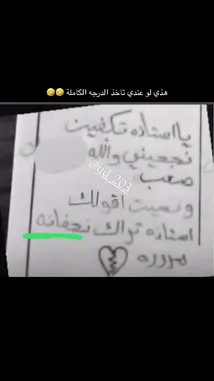 هذي لو عندي تاخذ الدرجه الكاملة 🤣🤣
يا استاذه تكفين
نجحيني والله
صعب
و نسيت اقولك
استاذه تراك نحفانه
مررره 💔